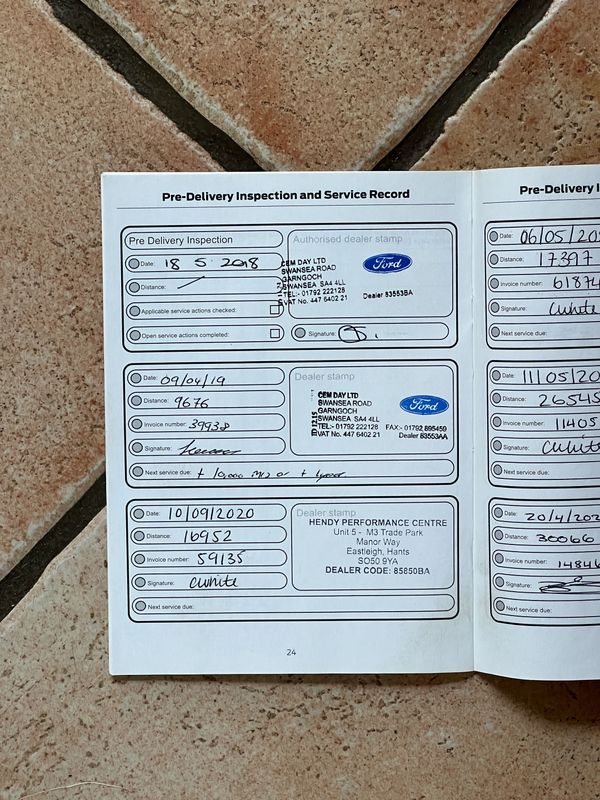 Pre-Delivery Inspection and Service Record
Pre Delivery Inspection
Date: 18 5 2018
Distance:
Applicable service actions checked:
Open service actions completed:
Authorised dealer stamp
CEM DAY LTD
SWANSEA ROAD
GARNGOCH
SWANSEA SA4 4LL
TEL:- 01792 222128
VAT No. 447 6402 21
Ford
Dealer 83553BA
Signature:
Date: 09/04/19
Distance: 9676
Invoice number: 39938
Signature:
Next service due: + 10,000 or + 1 year
Dealer stamp
CEM DAY LTD
SWANSEA ROAD
GARNGOCH
SWANSEA SA4 4LL
TEL:- 01792 222128 FAX:- 01792 895459
VAT No. 447 6402 21 Dealer 83553AA
Ford
Date: 10/09/2020
Distance: 16952
Invoice number: 59135
Signature: cwhite
Next service due:
Dealer stamp
HENDY PERFORMANCE CENTRE
Unit 5 - M3 Trade Park
Manor Way
Eastleigh, Hants
SO50 9YA
DEALER CODE: 85850BA
24
Pre-Delivery I
Date: 06/05/20
Distance: 17397
Invoice number: 6187
Signature: cwhite
Next service due:
Date: 11/05/20
Distance: 26545
Invoice number: 11405
Signature: cwhite
Next service due:
Date: 20/4/202
Distance: 30066
Invoice number: 14846
Signature:
Next service due: